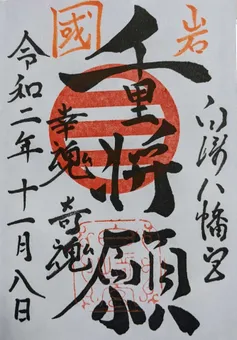 岩國
白崎八幡宮
重将願
幸魂 奇魂
令和二年十一月八日